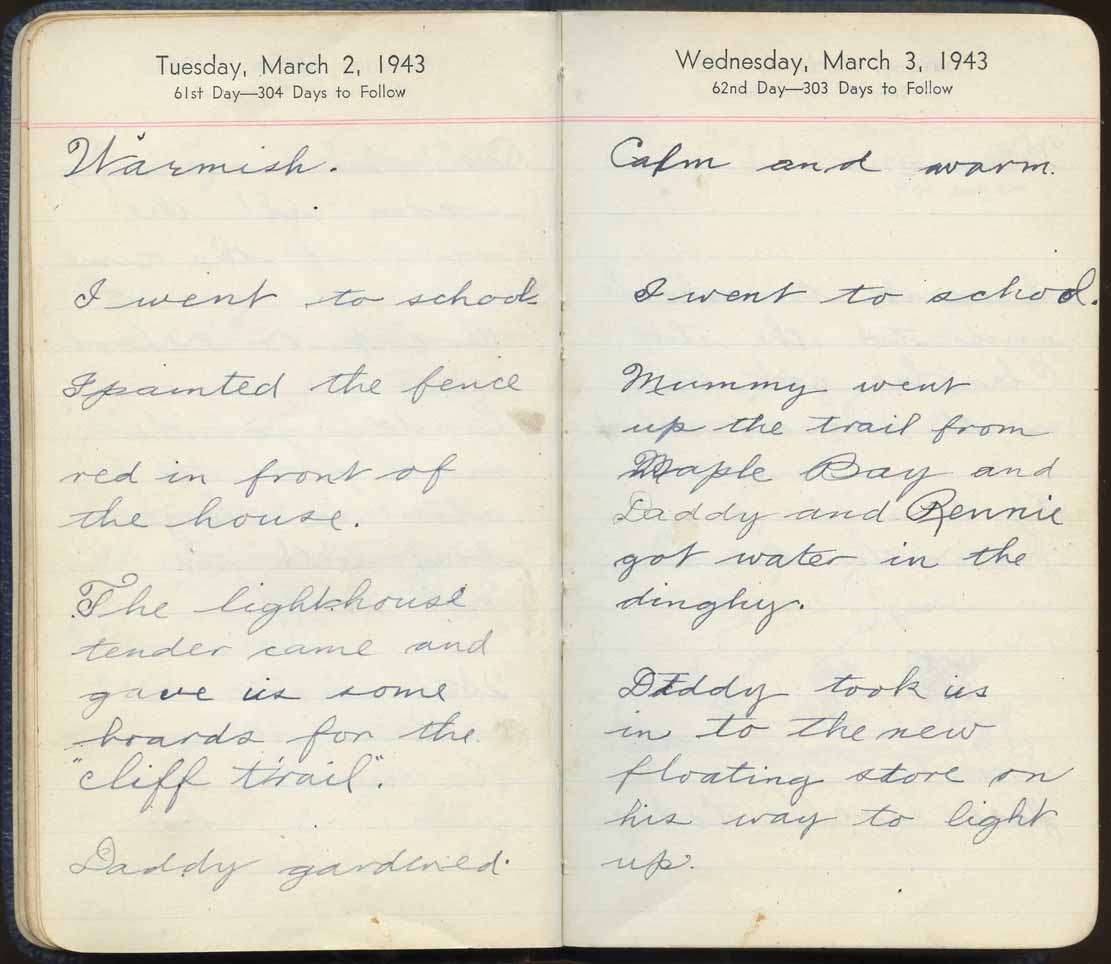 Tuesday, March 2, 1943
61st Day—304 Days to Follow
Warmish.
I went to school.
I painted the fence
red in front of
the house.
The lighthouse
tender came and
gave us some
boards for the
"cliff trail".
Daddy gardened.
Wednesday, March 3, 1943
62nd Day—303 Days to Follow
Calm and warm.
I went to school.
Mummy went
up the trail from
Maple Bay and
Daddy and Rennie
got water in the
dinghy.
Daddy took us
in to the new
floating store on
his way to light
up.